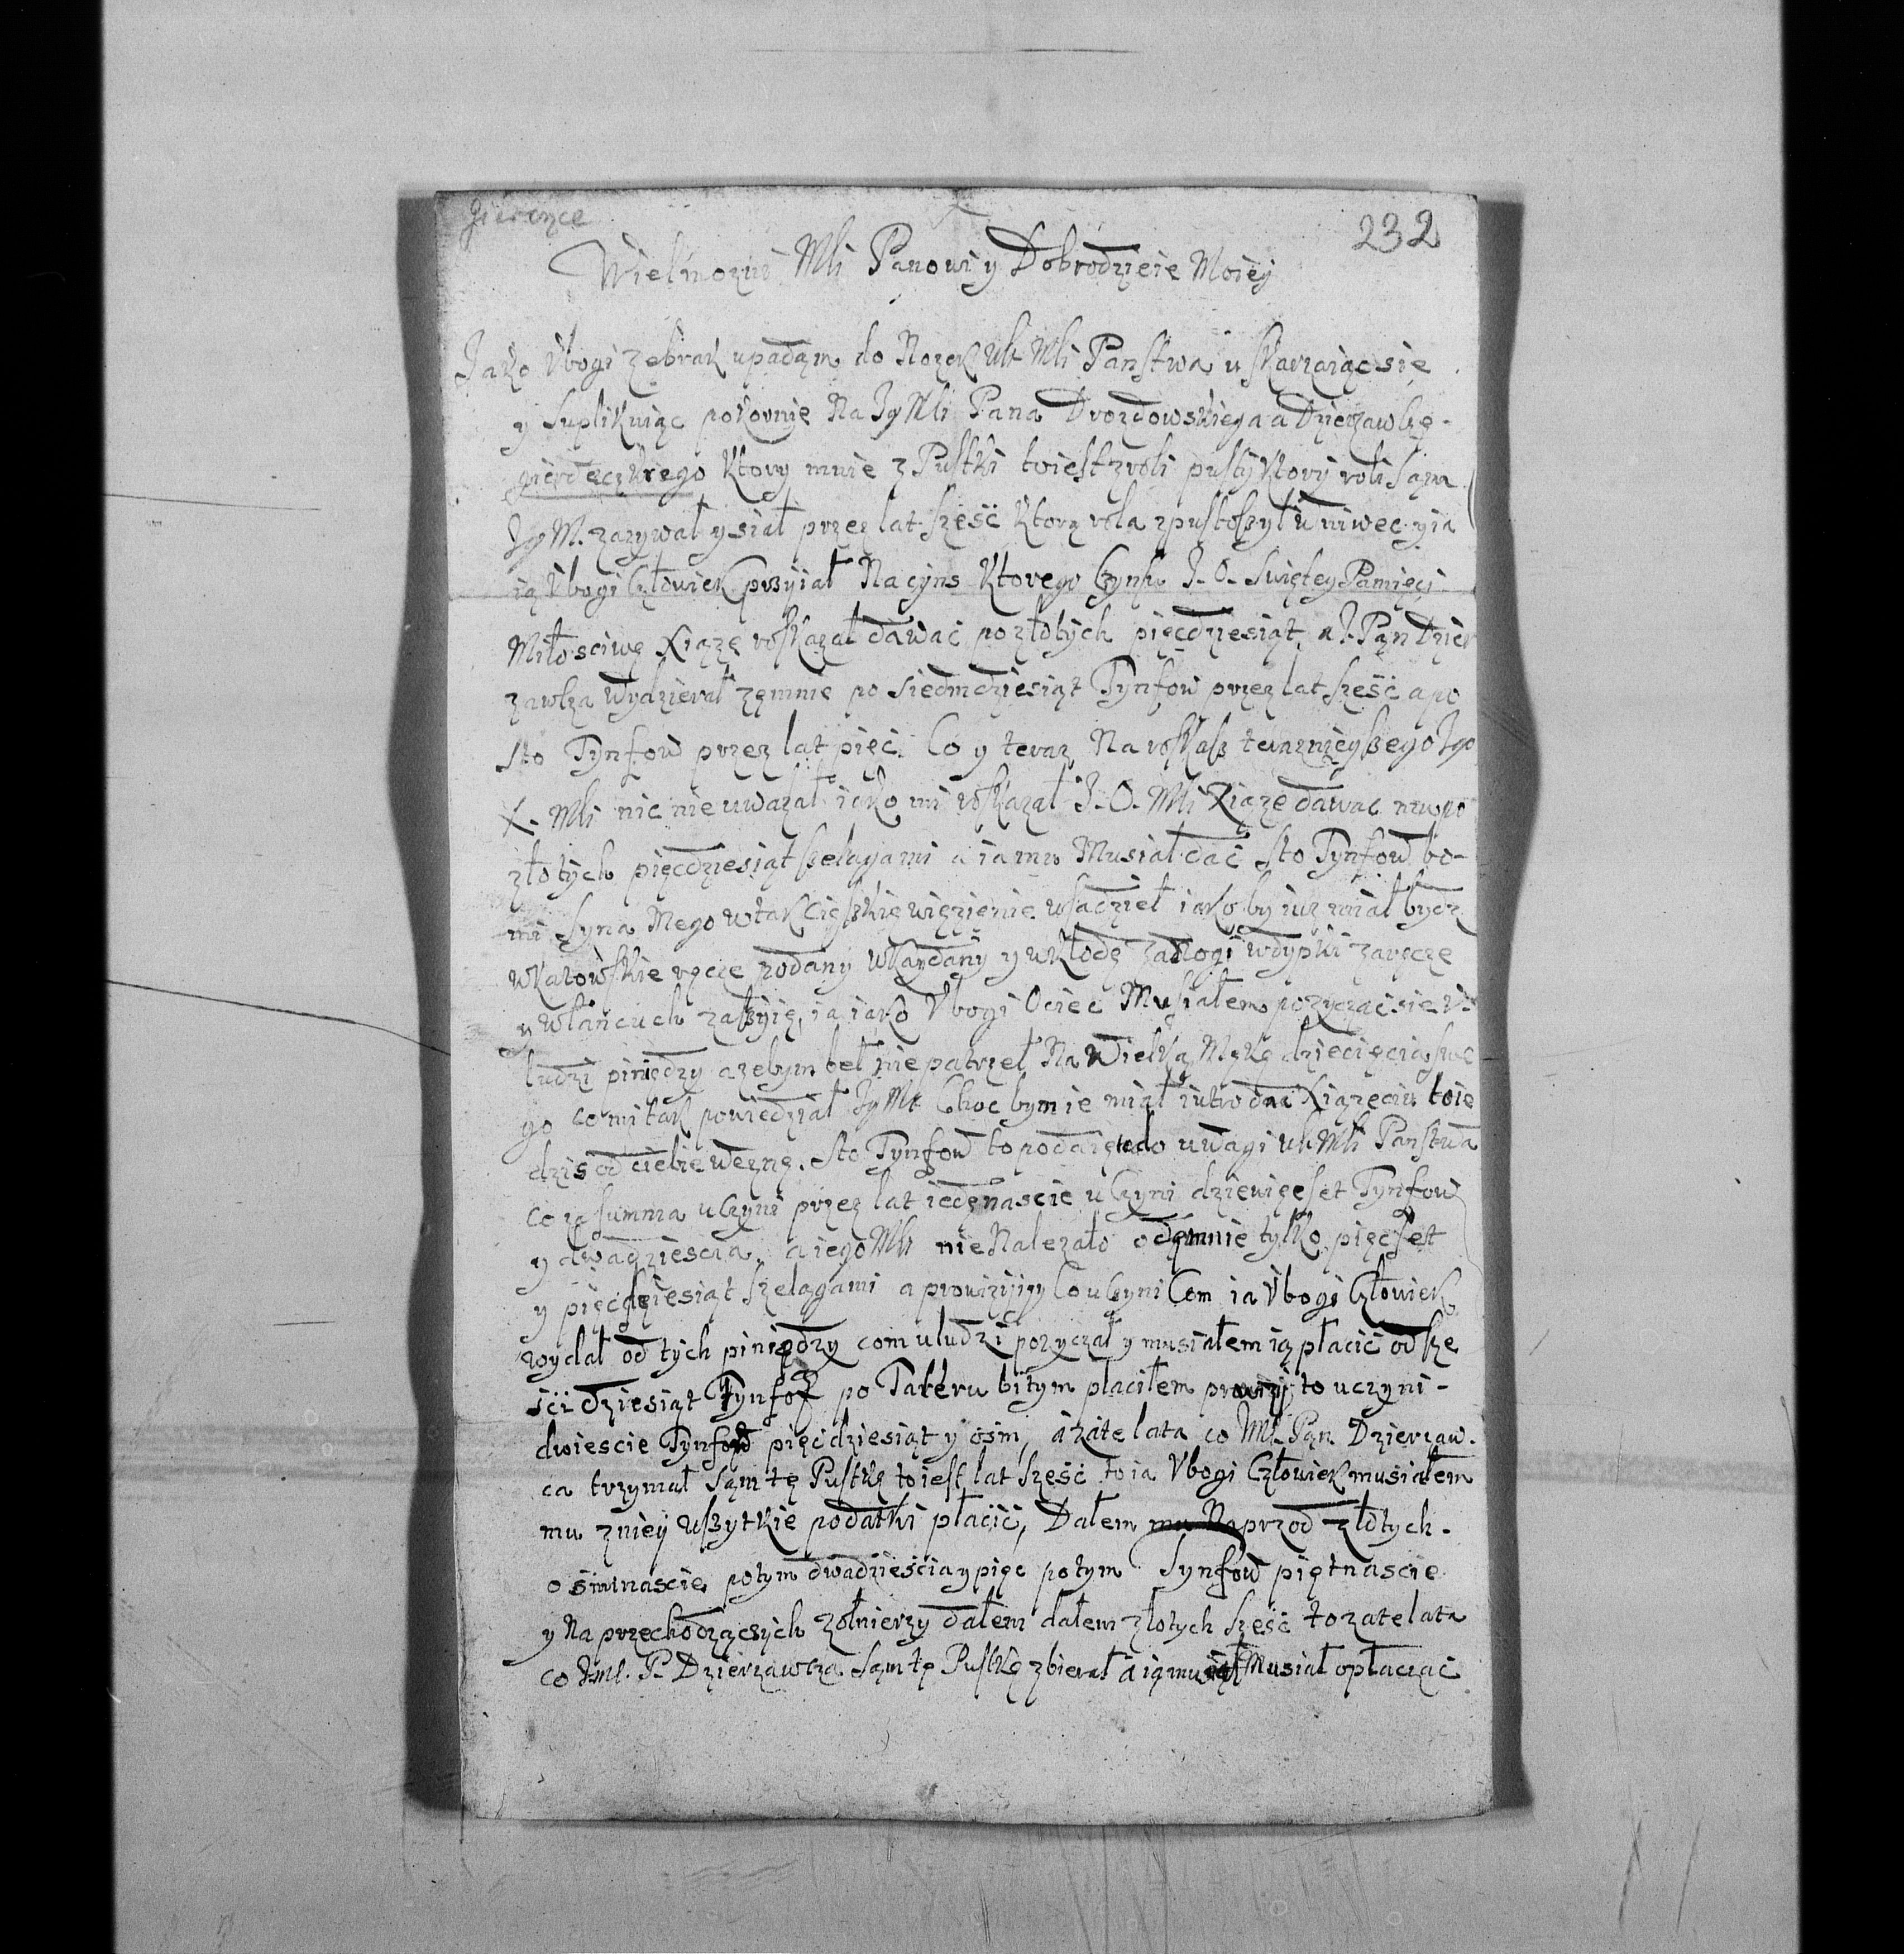 232
Wielmozni Mli Panowi y Dobrodzieie Moiey
Jako Vbogi zebrak upadam do Nozek Mli Panstwa uskarzaiąc się
y Suplikuiąc pokornie Na Jg Mli Pana Drozdowskiega a Dzierzawbę
ktory mnie z Pustki toiest zroli pusty ktory roli Sąm
Jg M. zazywał y siał przez lat sześć ktorą rola zpustoszył w niwec y ia
ią Vbogi Człowiek przyiał Na cyns ktorego Czynszu J. O. Swiętey Pamięci
Miłosciwę Xiązę roskazał dawać po złotych pięcdziesiąt, a J. Pąn Dzier
zawca wydzierał zęmnie po siedmdziesiąt Tynfow przez lat sześć a po
sto Tynfow przez lat pięć. Co y teraz Na roskasz teraznieyszego Jgo
X. Mli nic nie uwazał iako mi roskazał J. O. Mli Xiąze dawac mu po
złotych pięcdziesiąt szelągami a ia mu Musiał dać sto Tynfow bo-
mi Syna Mego w tak Cięszkię więzienie wsadzieł iako by iuz miał bydz
w katowskie ręcze podany w kaydany y w kłodę za nogi w dypki za ręcze
y w łańcuch za szyię, ia iako Vbogi Ociec Musiałem pozyczać sie v
ludzi piniędzy azebym beł nie patrzeł Na wielką Mękę dziecięcia swe
go co mi tak powiedział Jg Mć Choc bym ie miał iutro dać Xiązęciu to ie
dzis od ciebie wezmę. Sto Tynfow to podaię do uwagi Mli Panstwa
co za summa uczyni przez lat iedęnascie uczyni dziewięcset Tynfow
y dwadziescia, a iego Mli nie Nalezało odęmnie tylko pięcset
y pięcdziesiąt szelagami a prowizyiey co uczyni Com ia Vbogi Człowiek
wydał od tych piniędzy com u ludzi pozyczał y musiałem ią płacić od sze
ści dziesiąt Tynfow po Taleru bitym płaciłem prowizyi to uczyni-
dwiescie Tynfow pięcdziesiąt y ośm, a zate lata co JMć Pąn Dzierzaw-
ca trzymał Sąm tę Pustkę to iest lat sześć to ia Vbogi Człowiek musiałem
mu zniey wszytkie podatki płacić, Dałem mu Naprzod złotych
osimnascie potym dwadziescia y pięc potym Tynfow piętnascie
y Na przechodzących zołnierzy dałem dałem złotych sześć to zate lata
co Jmć. P. Dzierzawca Sąm tę Pustkę zbierał a ią Musiał opłacać